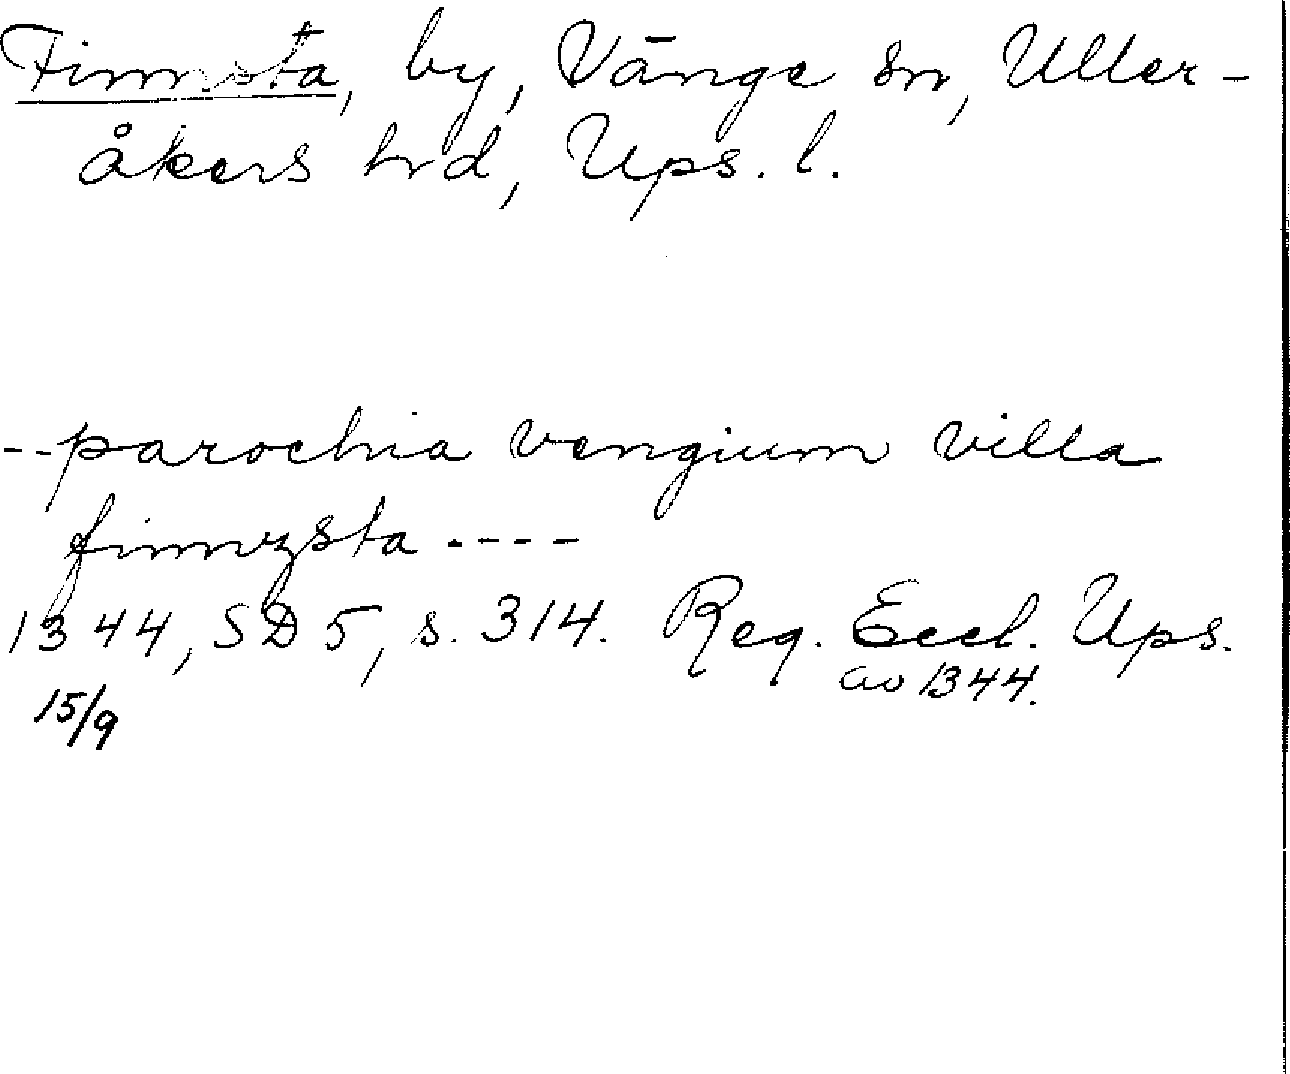 Finnsta, by, Vänge sn, Uller-
åkers hrd, Ups. l.
--parochia vengium villa
finnzsta ----
1344, SD 5, s. 314. Reg. Eccl. Ups.
av 1344.
15/9